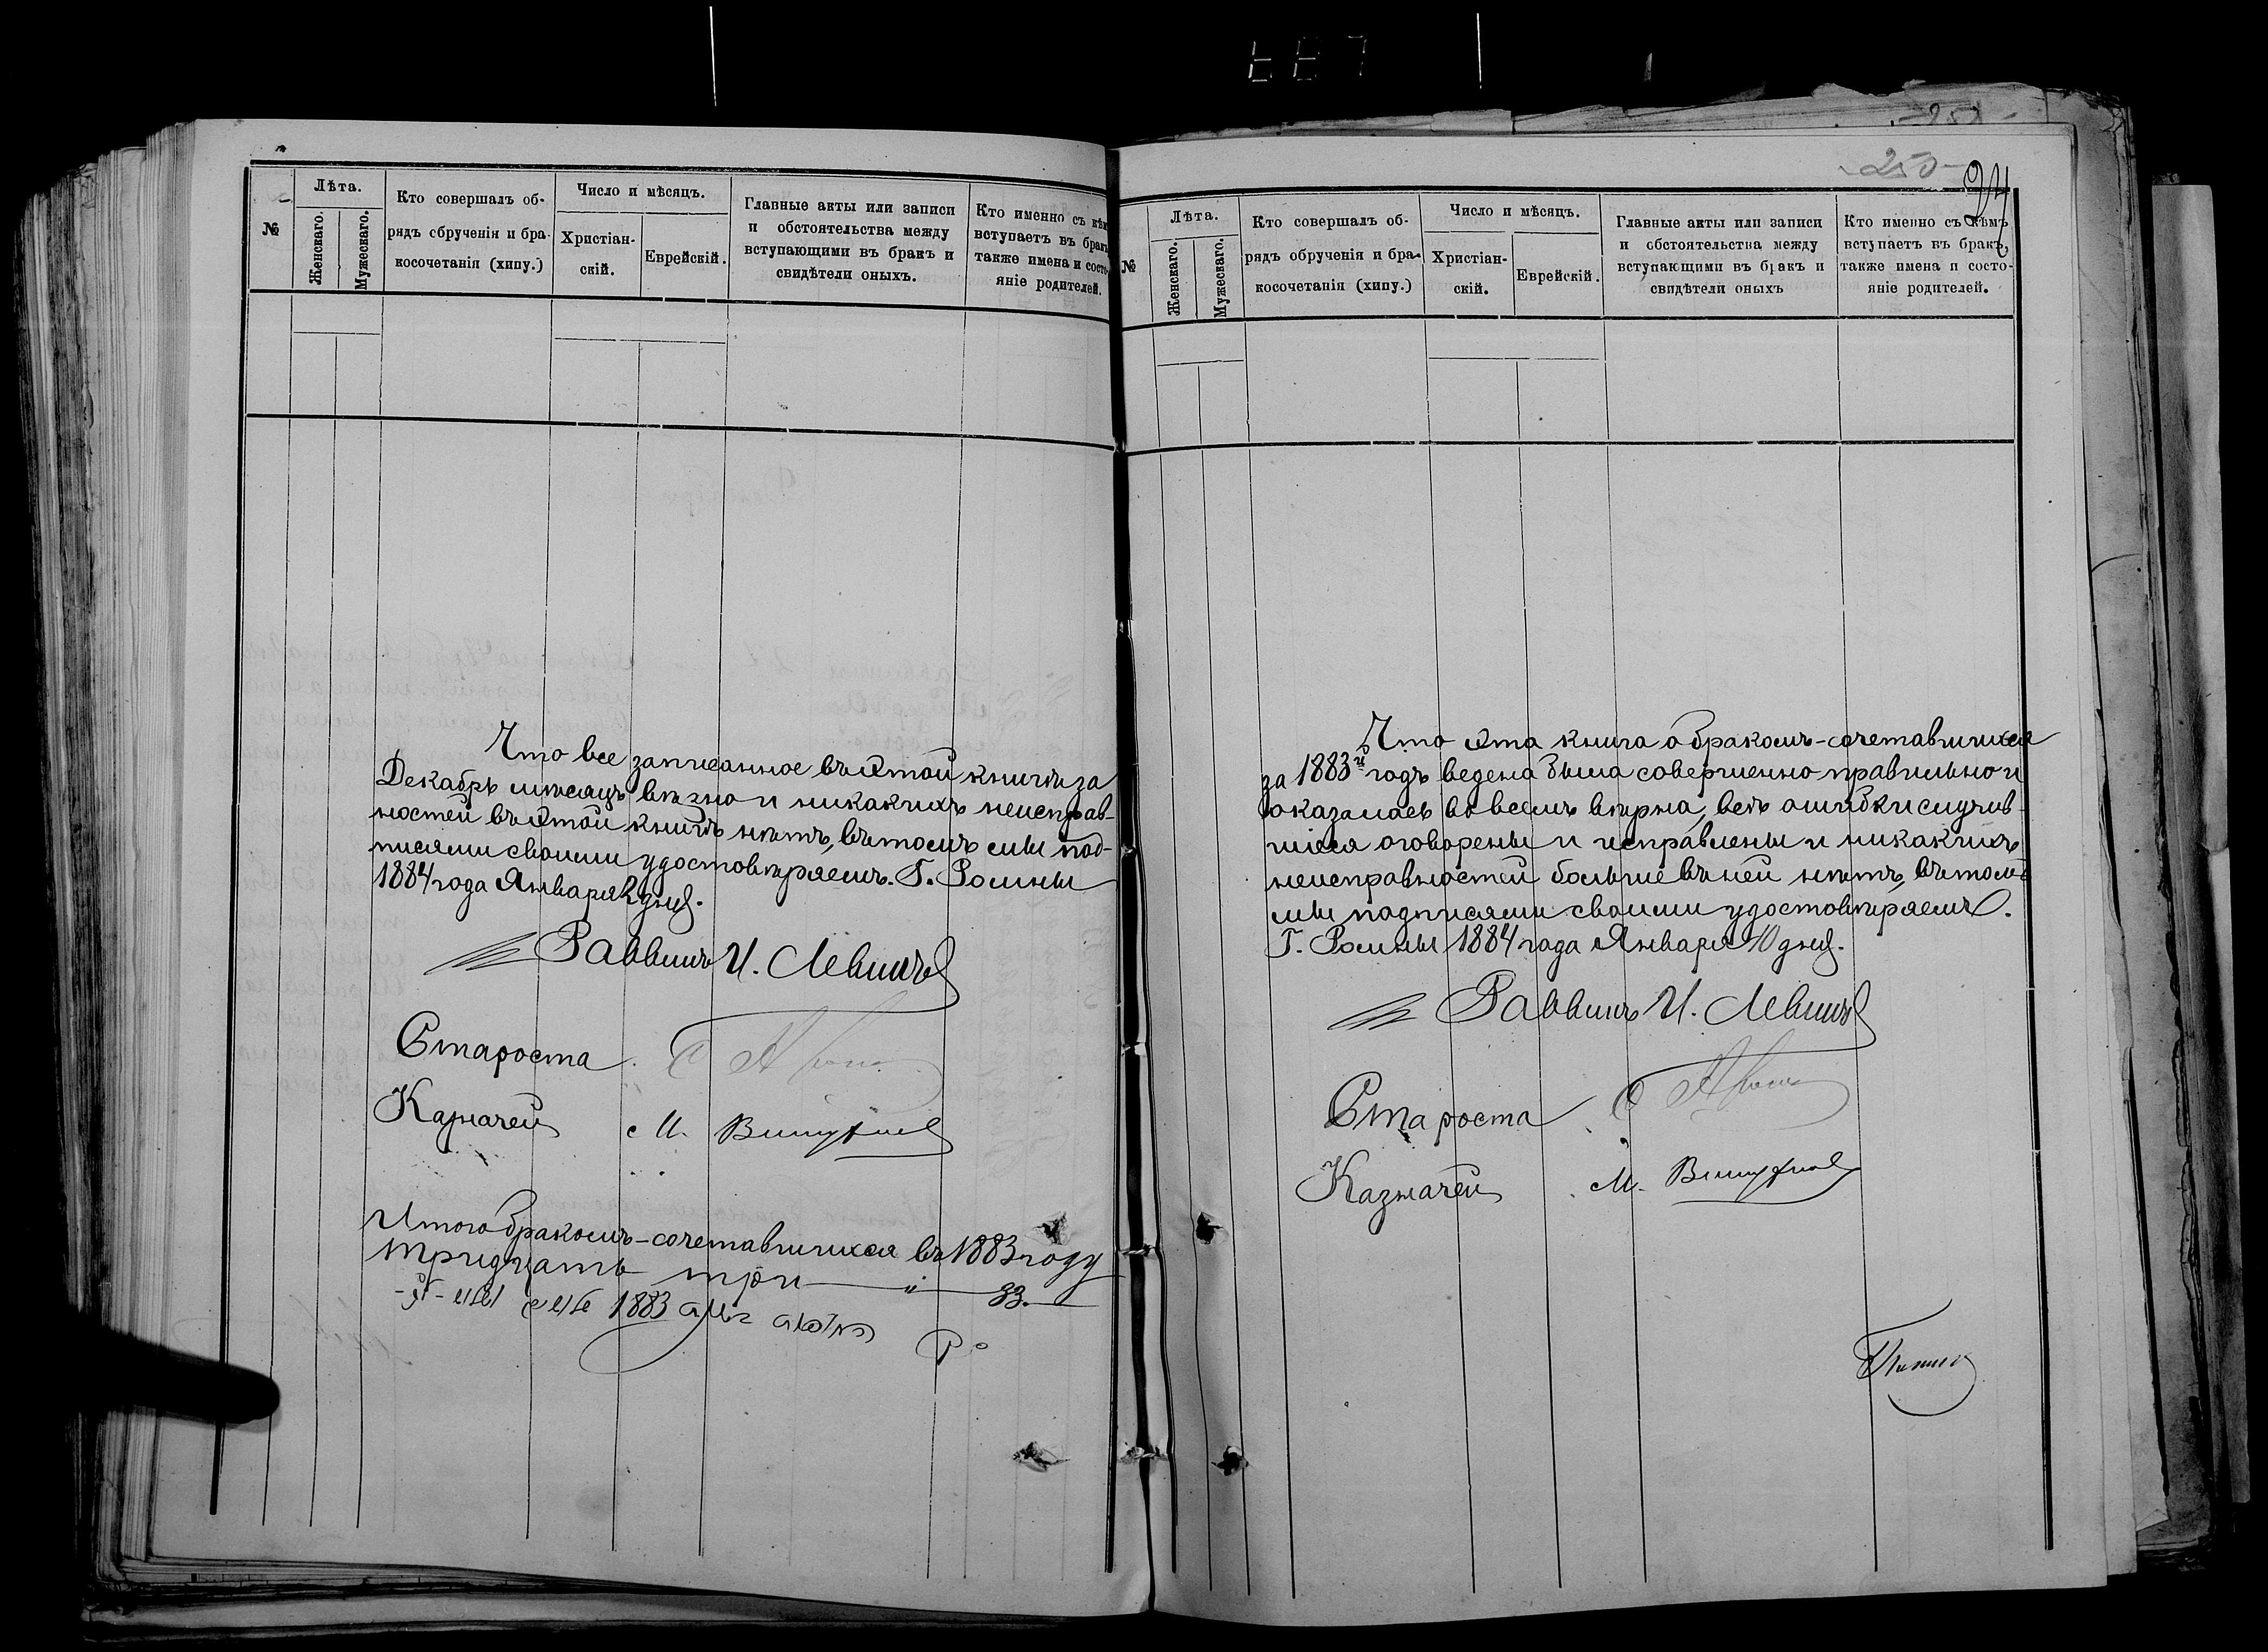 №
Лѣта.
Женскаго.
Мужескаго.
Кто совершалъ об-
рядъ обрученія и бра-
косочетанія (хипу.)
Число и мѣсяцъ.
Христіан-
скій.
Еврейскій.
Главные акты или записи
и обстоятельства между
вступающими въ бракъ и
свидѣтели оныхъ.
Кто именно съ кѣмъ
вступаетъ въ бракъ,
также имена и состо-
яніе родителей.
Что все записанное въ этой книгѣ за
Декабрь мѣсяцъ вѣрно и никакихъ неисправ-
ностей въ этой книгѣ нѣтъ, въ томъ мы под-
писями своими удостовѣряемъ. Г. Ромны
1884 года Января 2 дня.
Раввинъ И. Левинъ
Староста
Казначей М.
Итого бракомъ-сочетавшихся въ 1883 году
тридцать три — " — 33.
1883
250
24
№
Лѣта.
Женскаго.
Мужескаго.
Кто совершалъ об-
рядъ обрученія и бра-
косочетанія (хипу.)
Число и мѣсяцъ.
Христіан-
скій.
Еврейскій.
Главные акты или записи
и обстоятельства между
вступающими въ бракъ и
свидѣтели оныхъ
Кто именно съ кѣмъ
вступаетъ въ бракъ,
также имена и состо-
яніе родителей.
Что эта книга о бракомъ-сочетавшихся
за 1883й годъ ведена была совершенно правильно и
оказалась во всемъ вѣрна, всѣ ошибки случив-
шіяся оговорены и исправлены и никакихъ
неисправностей больше въ ней нѣтъ, въ томъ
мы подписями своими удостовѣряемъ.
Г. Ромны 1884 года Января 10 дня.
Раввинъ И. Левинъ
Староста
Казначей М.